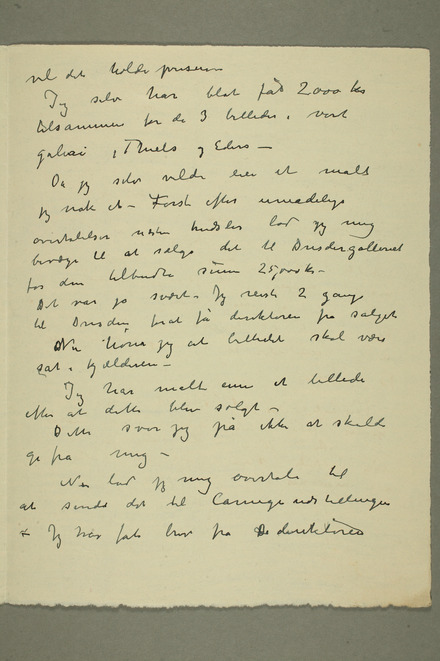 vil det holde prisern
Jeg selv har blot fåt 2000 ks
tilsammen for de 3 billeder i vort
galeri, Thiels og Eders —
Da jeg selv vilde eie et malt
jeg nok et — Først efter umadelige
overtalelser næsten lod jeg mig
bevæge til at sælge det til Dresdergalleriet
for den tilbudte sum 25,000 ks —
Det var jo svært — Jeg reiste 2 gange
til Dresden for at få direktøren fra salget
Nu hører jeg at billedet skal være
sat i kjælderen —
Jeg har malt enu et billede
efter at dette blev solgt —
Dette svor jeg på ikke at skulde
gå fra mig —
Nu lod jeg mig overtale til
at sende det til Carnegie udstillingen
Jeg har fåt brev fra direktøren